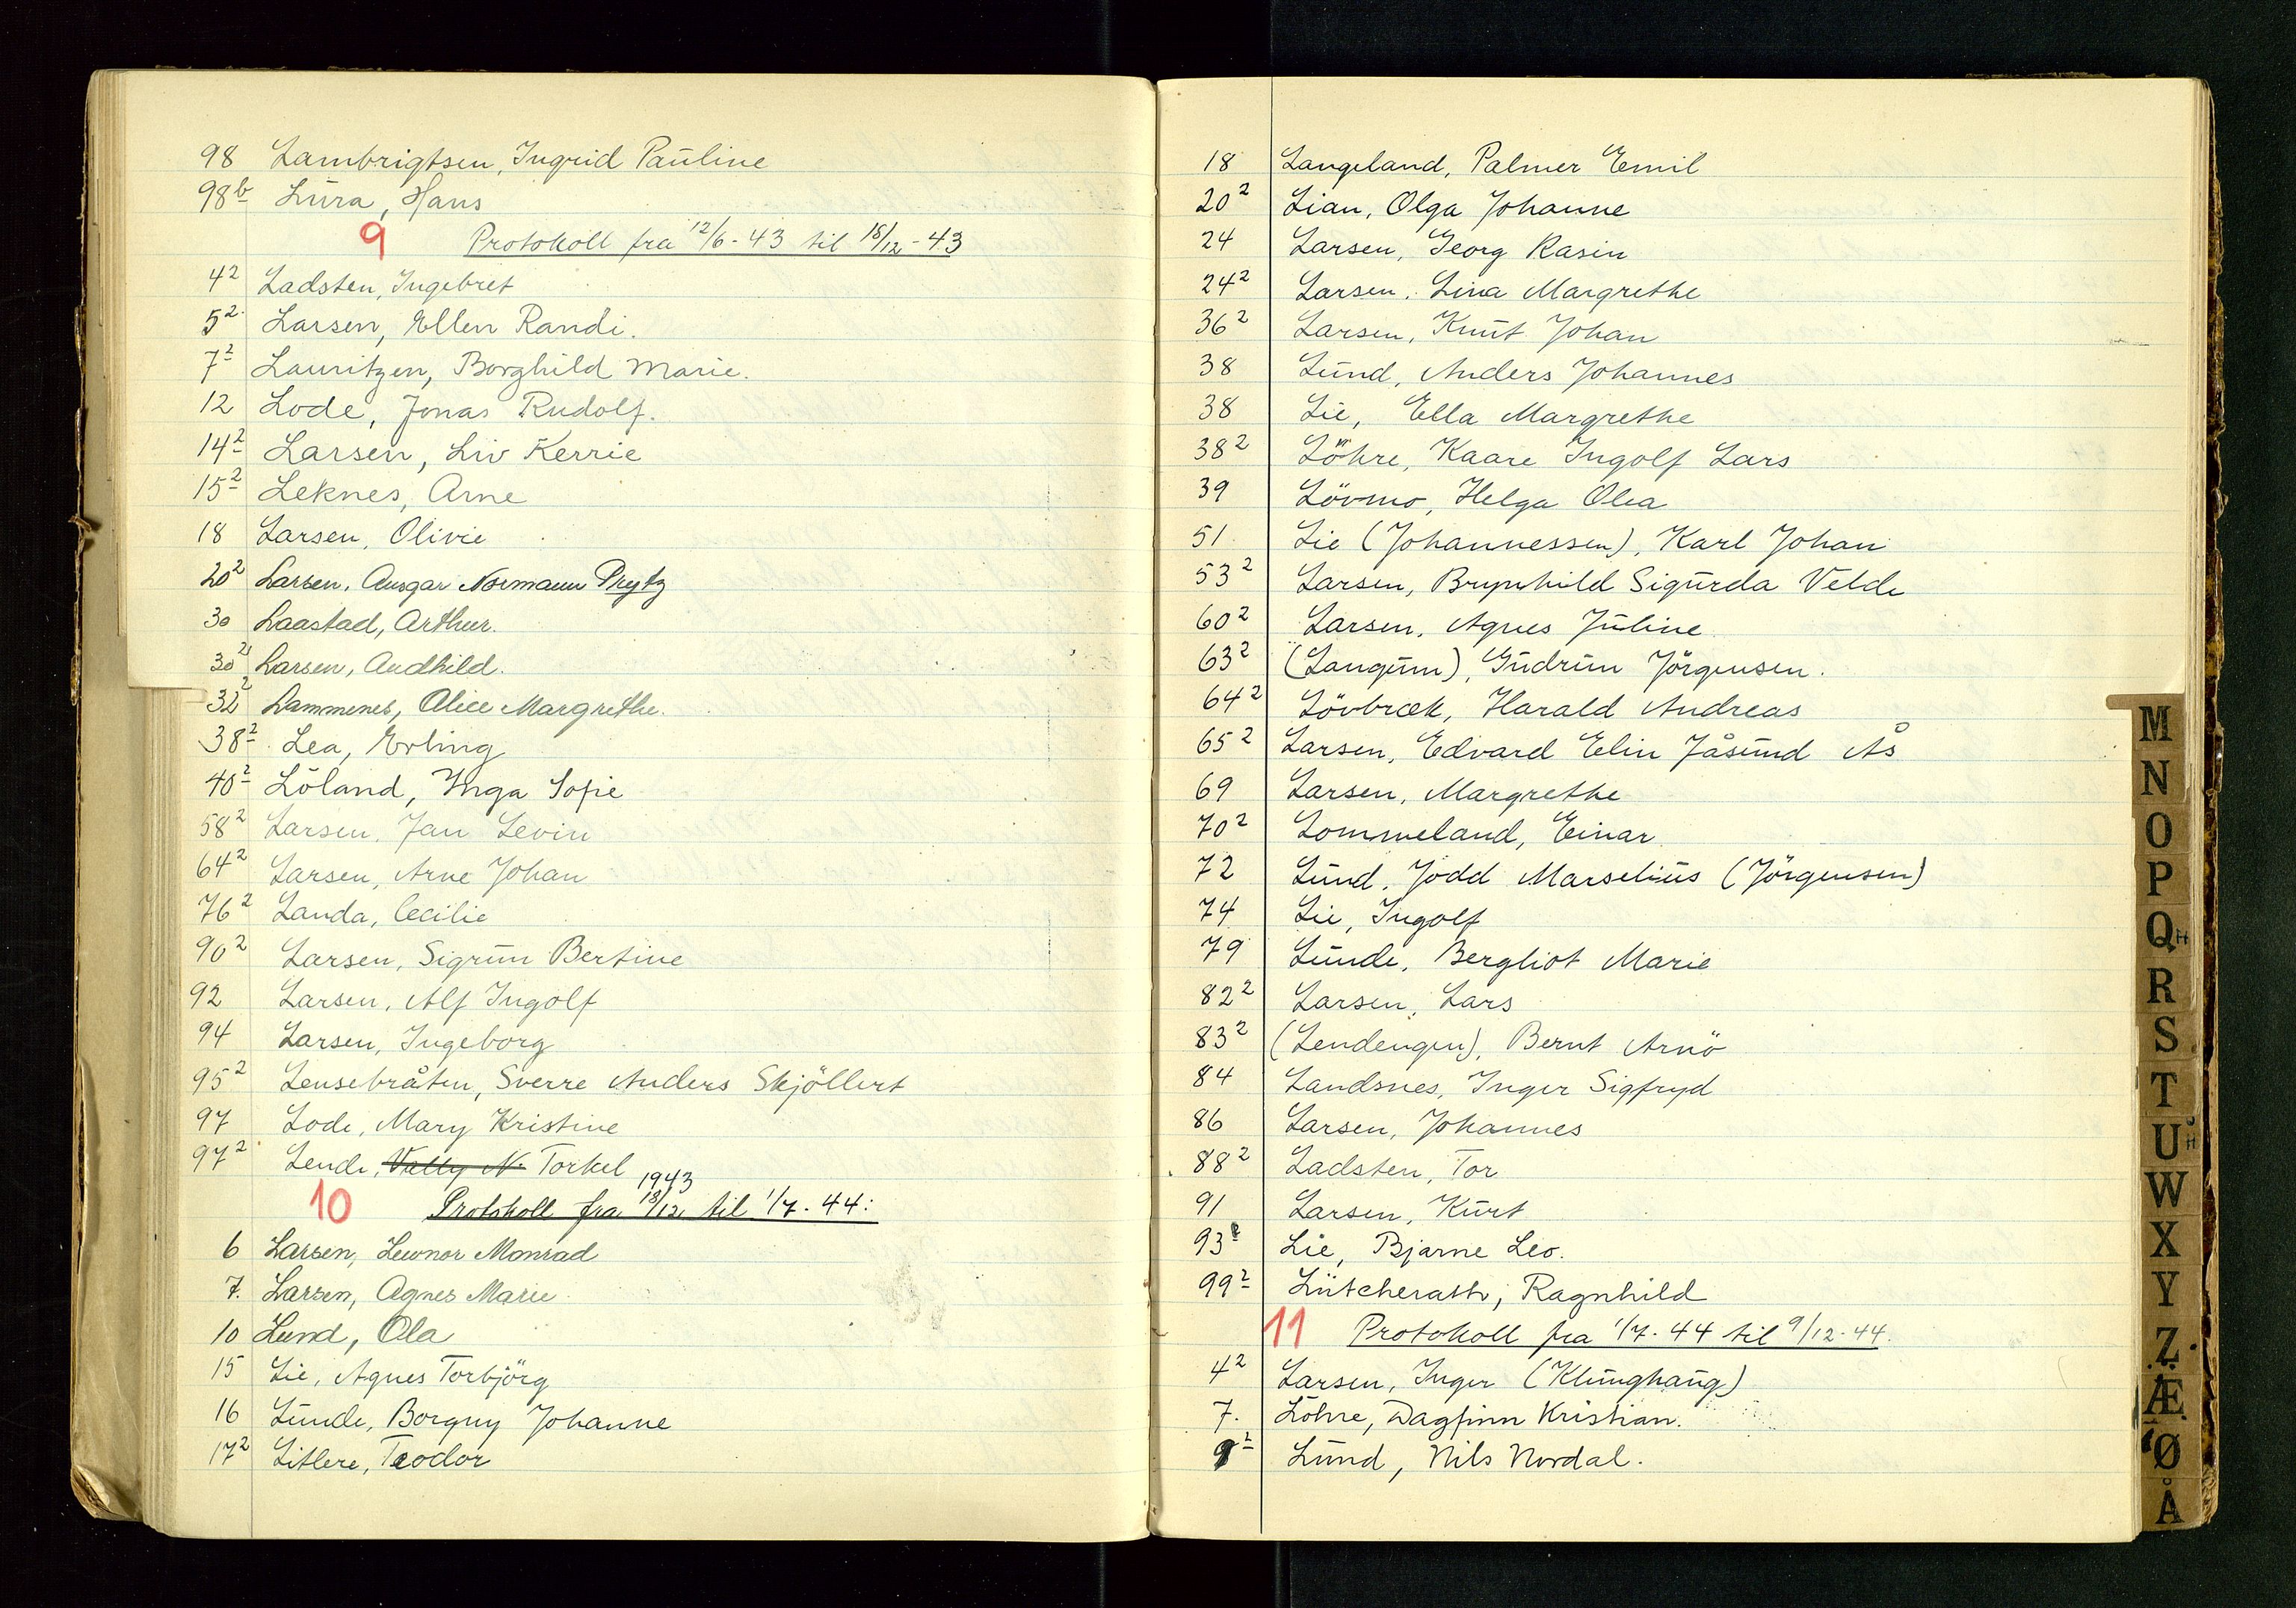 98 Lambrigtsen, Ingrid Pauline
98b Lura, Hans
9 Protokoll fra 12/6-43 til 18/12-43
4² Ladsten, Ingebret
5² Larsen, Ellen Randi.
7² Lauritzen, Borghild Marie.
12 Lode, Jonas Rudolf.
14² Larsen, Liv Kerrie
15² Leknes, Arne
18 Larsen, Olivie
20² Larsen, Ansgar Normann Prytz
30 Laastad, Arthur.
30² Larsen, Audhild.
32² Lammenes, Alice Margrethe.
38² Lea, Erling
40² Löland, Inga Sofie
58² Larsen, Jan Levin
64² Larsen, Arne Johan
76² Landa, Cecilie
90² Larsen, Sigrun Bertine
92 Larsen, Alf Ingolf
94 Larsen, Ingeborg
95² Lensebråten, Sverre Anders Skjöllert
97 Lode, Mary Kristine
97² Lende, Vally N. Torkel
10 Protokoll fra 18/12 1943 til 1/7-44:
6 Larsen, Lewnor Monrad
7. Larsen, Agnes Marie
10 Lund, Ola
15 Lie, Agnes Torbjörg
16 Lunde, Borgny Johanne
17² Litlere, Teodor
18 Langeland, Palmer Emil
20² Lian, Olga Johanne
24 Larsen, Georg Rasin
24² Larsen, Lina Margrethe
36² Larsen, Knut Johan
38 Lund, Anders Johannes
38 Lie, Ella Margrethe
38² Löhre, Kaare Ingolf Lars
39 Lövmo, Helga Olea
51 Lie (Johannessen), Karl Johan
53² Larsen, Brynhild Sigurda Velde
60² Larsen, Agnes Juline
63² (Langum), Gudrun Jörgensen.
64² Lövbræk, Harald Andreas
65² Larsen, Edvard Elin Jåsund Ås
69 Larsen, Margrethe
70² Lommeland, Einar
72 Lund, Jodd Marselius (Jörgensen)
74 Lie, Ingolf
79 Lunde, Bergliot Marie
82² Larsen, Lars
83² (Lendengen), Bernt Arnö
84 Landsnes, Inger Sigfryd
86 Larsen, Johannes
88² Ladsten, Tor
91 Larsen, Kurt
93² Lie, Bjarne Leo.
99² Lütcherath, Ragnhild
11 Protokoll fra 1/7-44 til 9/12-44.
4² Larsen, Inger (Klunghaug)
7. Löhre, Dagfinn Kristian.
9² Lund, Nils Nordal.
M
N
O
P
Q
R
S
T
U
W
X
Y
Z
Æ
Ø
Å